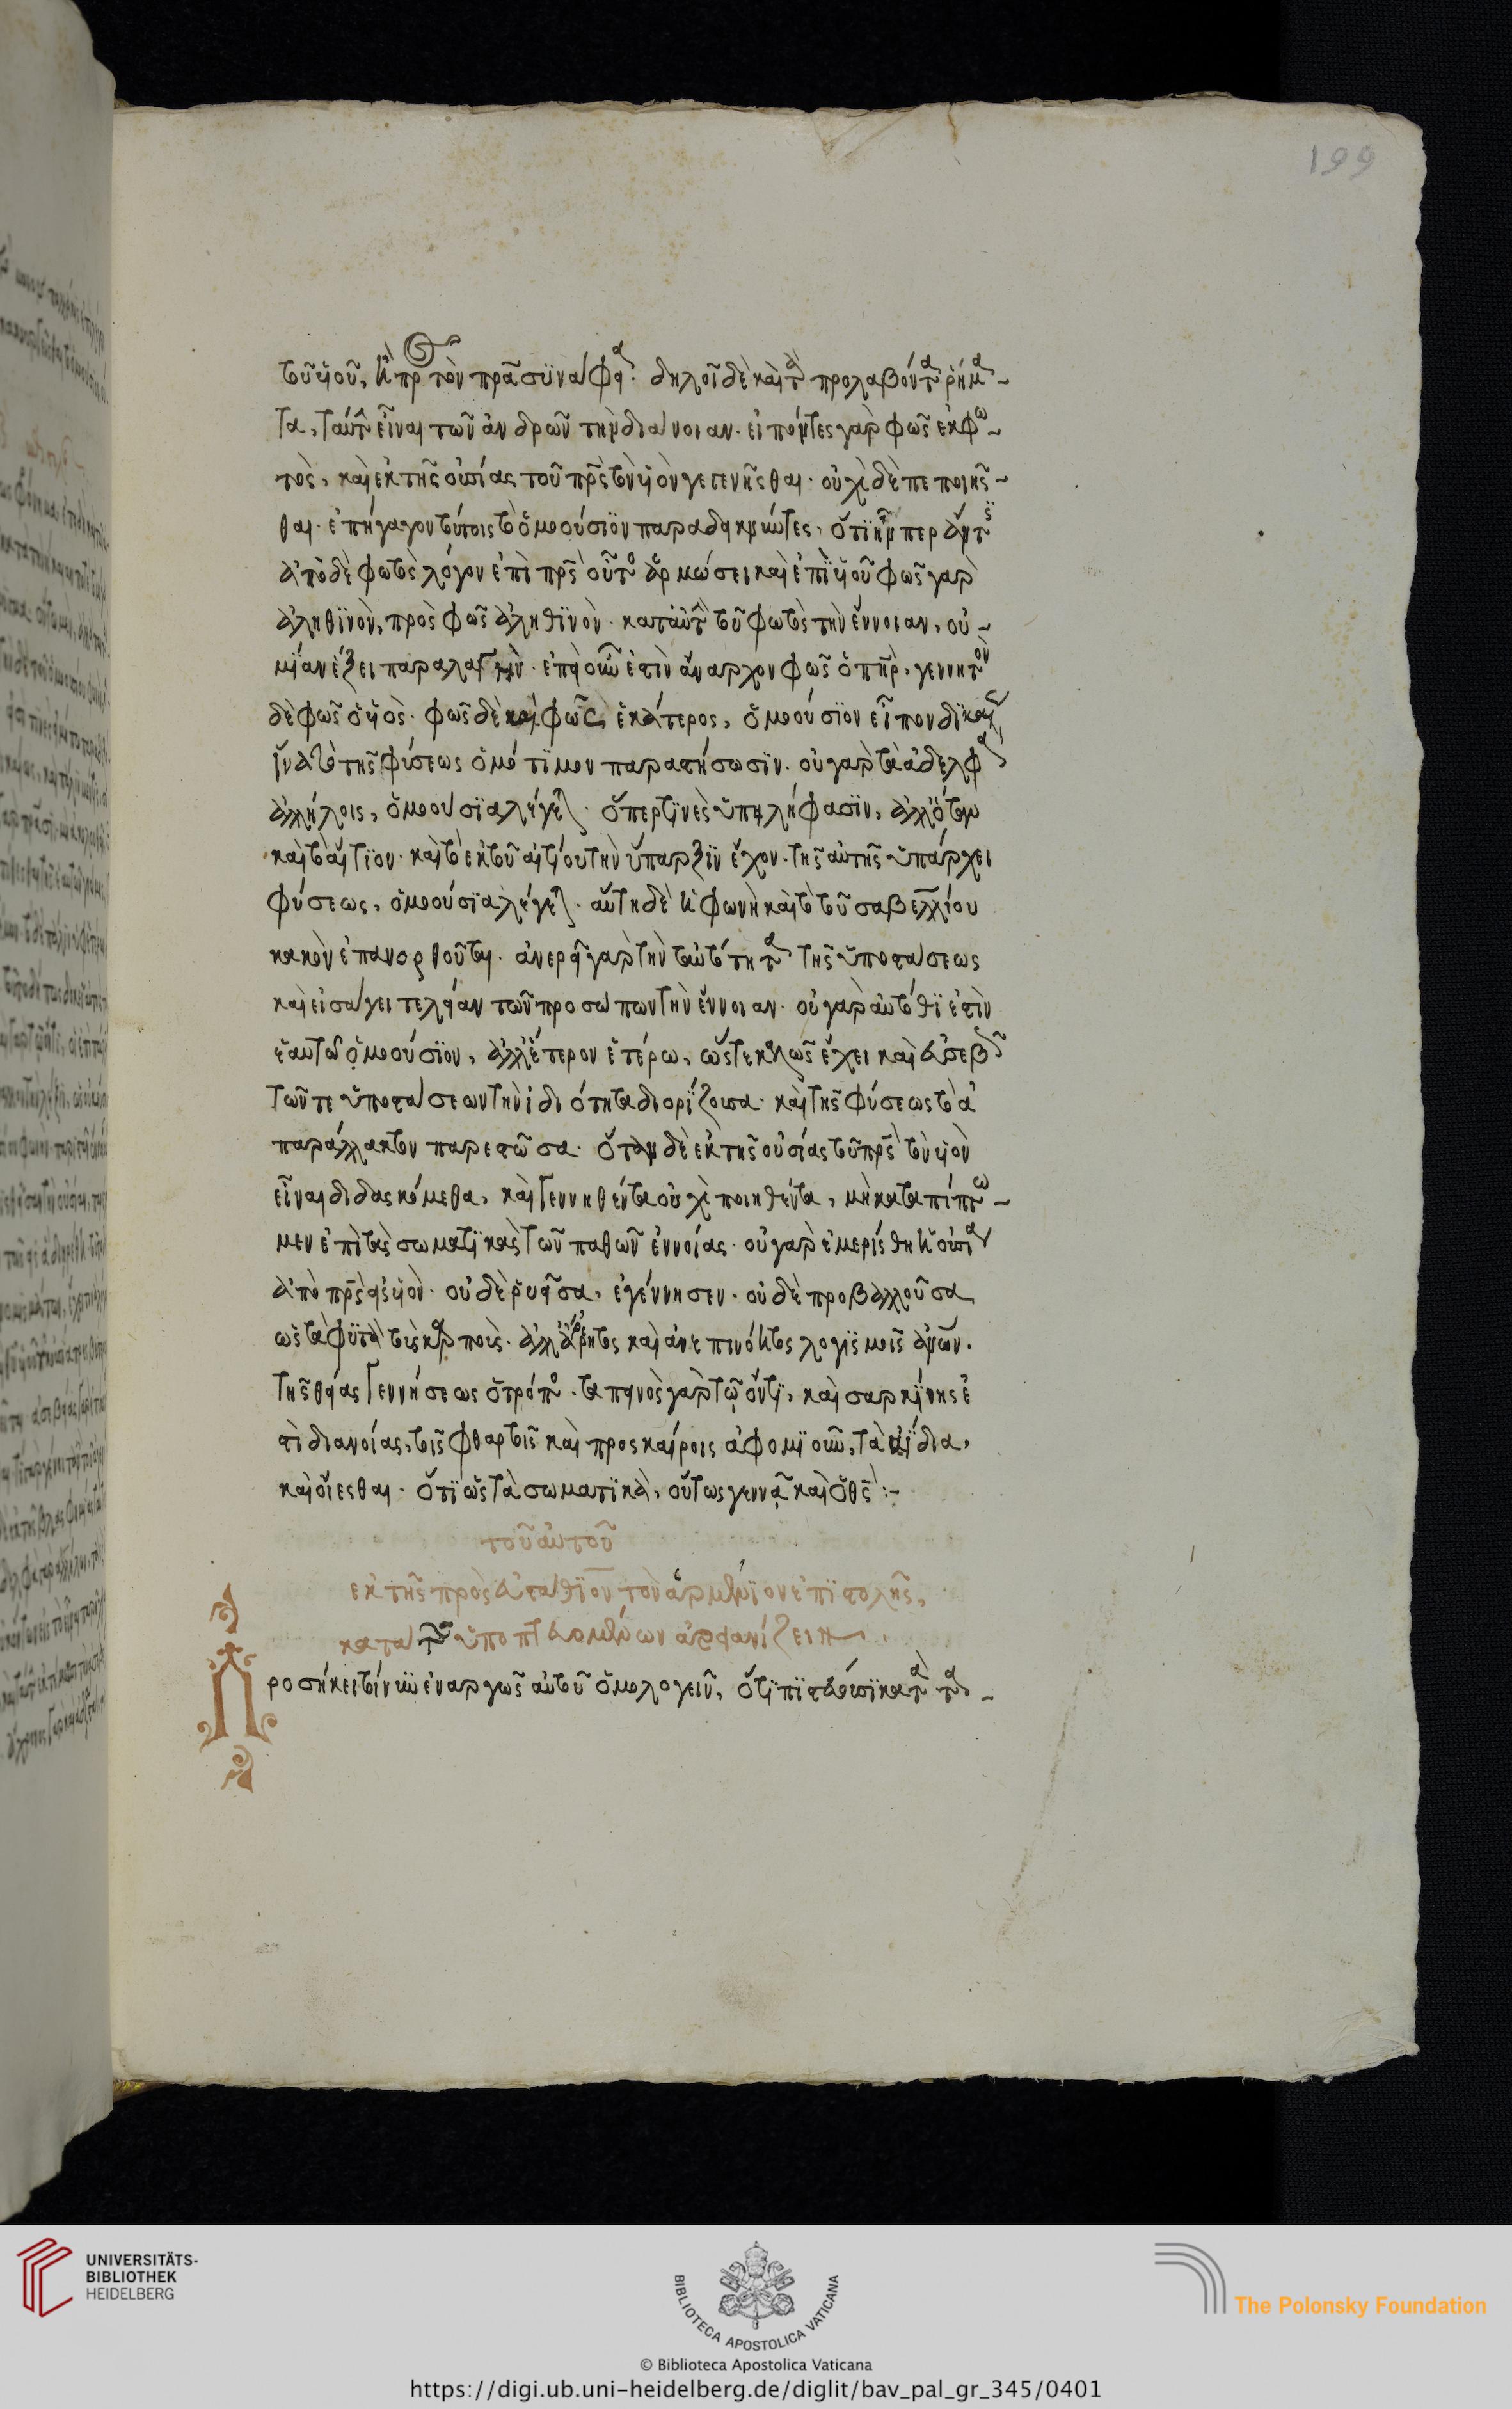 τοῦ υἱοῦ, ἡ πρ τὸν πρ̅α συνάφει^α. δηλοῖ δὲ καὶ τὰ προλαβόντα ῥήμα-
τα, ταύτ εἶναι τῶν ἀνδρῶν τὴν διάνοιαν. εἰπόντες γὰρ φῶς ἐκ φω-
τὸς, καὶ ἐκ τῆς οὐσίας τοῦ πρ̅ς τὸν υἱὸν γεγενῆσθαι. οὐχὶ δὲ πεποιῆσ-
θαι. ἐπήγαγον τούτοις τὸ ὁμοούσϊον παραδεικνύντες, ὅτϊ ἥνπερ ἄντϊς
ἀποδὲ φωτὸς λόγον ἐπὶ πρ̅ς οὗτο ἁρμώσει καὶ ἐπὶ υἱοῦ φῶς γὰρ
ἀληθϊνὸν, πρὸς φῶς ἀληθϊνὸν. κατ αὐτ τοῦ φωτὸς τὴν ἔννοιαν, οὐ-
μίαν ἕξει παραλαγὴν. ἐπεὶ οὖν ἐστὶν ἄναρχον φῶς ὁ πη̅ρ, γεννητὸν
δὲ φῶς ὁ υἱὸς. φῶς δὲ καὶ φῶς, ἑκάτερος, ὁμοούσϊον εἶπον δϊκαί
ἵνα τὸ τῆς φύσεως ὁμότϊμον παραστήσωσϊν. οὐ γὰρ τὰ ἀδελφὰ
ἀλλήλοις, ὁμοούσϊα λέγεται. ὅπερ τϊνὲς ὑπειλήφασϊν, ἀλλ' ὅταν
καὶ τὸ αἴτϊον. καὶ τὸ ἐκ τοῦ αἰτίου τὴν ὕπαρξϊν ἔχον. τῆς αὐτῆς ὑπάρχει
φύσεως, ὁμοούσϊα λέγεται. αὕτη δὲ ἡ φωνὴ καὶ τὸ τοῦ σαβελλίου
κακὸν ἐπανορθοῦται. ἀνερεῖ γὰρ τὴν ταὐτότητα τῆς ὑποστάσεως
καὶ εἰσάγει τελείαν τῶν προσώπων τὴν ἔννοιαν. οὐ γὰρ αὐτόθϊ ἐστὶν
ἑαυτῷ ὁμοούσϊον, ἀλλ' ἕτερον ἑτέρω, ὥστε καλῶς ἔχει καὶ εὐσεβῶ
τῶν τε ὑποστάσεων τὴν ἰδιότητα διορίζουσα. καὶ τῆς φύσεως τὸ ἀ
παράλλακτον παρεστῶσα. ὅταν δὲ ἐκ τῆς οὐσίας τοῦ πρ̅ς τὸν υἱὸν
εἶναι διδασκόμεθα, καὶ γεννηθέντα οὐχὶ ποιηθέντα, μὴ καταπίπτω-
μεν ἐπὶ τὰς σωματϊκὰς τῶν παθῶν ἐννοίας. οὐ γὰρ ἐμερίσθη ἡ οὐσία
ἀπὸ πρ̅ς εἰς υἱὸν. οὐδὲ ῥυεῖσα, ἐγέννησεν. οὐδὲ προβαλλοῦσα
ὡς τὰ φϋτὰ τοὺς καρποὺς. ἀλλ' ἄρρητος καὶ ἀνεπινόητος λογϊσμοῖς ἀνων.
τῆς θείας γεννήσεως ὁ τρόπο. ταπεινὸς γὰρ τῷ ὄντϊ, καὶ σαρκϊνης ἐ
στὶ διανοίας, τοῖς φθαρτοῖς καὶ προσκαίροις ἀφομϊοῦν, τὰ ἀΐδια,
καὶ οἴεσθαι. ὅτϊ ὡς τὰ σωματϊκὰ, οὕτως γεννᾷ καὶ ὁ θς̅ :-
τοῦ αὐτοῦ
ἐκ τῆς πρὸς εὐσταθϊον τὸν ἀρμένϊον ἐπϊστολῆς,
κατὰ τ ὑποπτευομένων ἀρειανίζειν
Προσήκει τοίνυν ἐναργῶς αὐτοῦ ὁμολογεῖν, ὅτϊ πϊστεύουσϊ κατὰ τὰ-
199
UNIVERSITÄTS-
BIBLIOTHEK
HEIDELBERG
BIBLIOTECA APOSTOLICA VATICANA
The Polonsky Foundation
© Biblioteca Apostolica Vaticana
https://digi.ub.uni-heidelberg.de/diglit/bav_pal_gr_345/0401